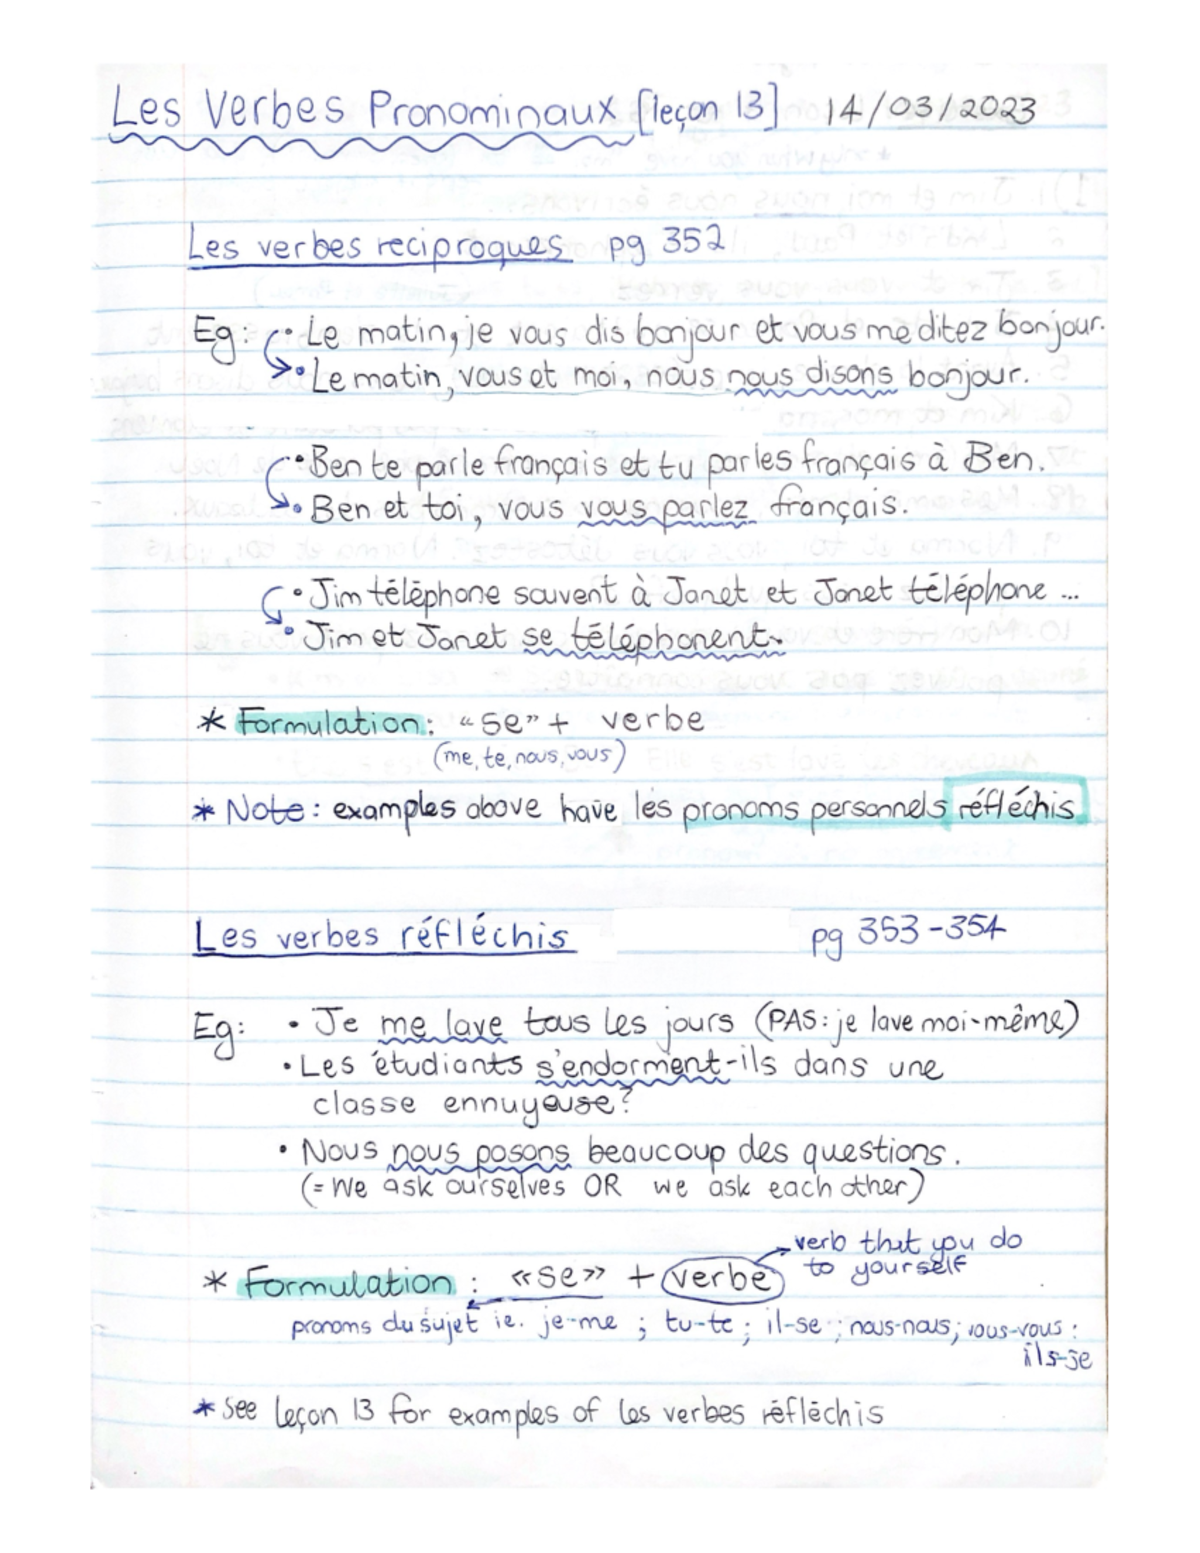 Les Verbes Pronominaux [leçon 13] 14/03/2023
Les verbes reciproques pg 352
Eg: • Le matin, je vous dis bonjour et vous me ditez bonjour.
• Le matin, vous et moi, nous nous disons bonjour.
• Ben te parle français et tu parles français à Ben.
• Ben et toi, vous vous parlez français.
• Jim téléphone souvent à Janet et Janet téléphone ...
• Jim et Janet se téléphonent.
* Formulation: "se" + verbe
(me, te, nous, vous)
* Note: examples above have les pronoms personnels réfléchis
Les verbes réfléchis pg 353-354
Eg: • Je me lave tous les jours (PAS: je lave moi-même)
• Les étudiants s'endorment-ils dans une
classe ennuyeuse?
• Nous nous posons beaucoup des questions.
(= We ask ourselves OR we ask each other)
verb that you do
to yourself
* Formulation: «se» + verbe
pronoms du sujet ie. je-me ; tu-te ; il-se ; nous-nous; vous-vous ;
ils-se
* See leçon 13 for examples of les verbes réfléchis